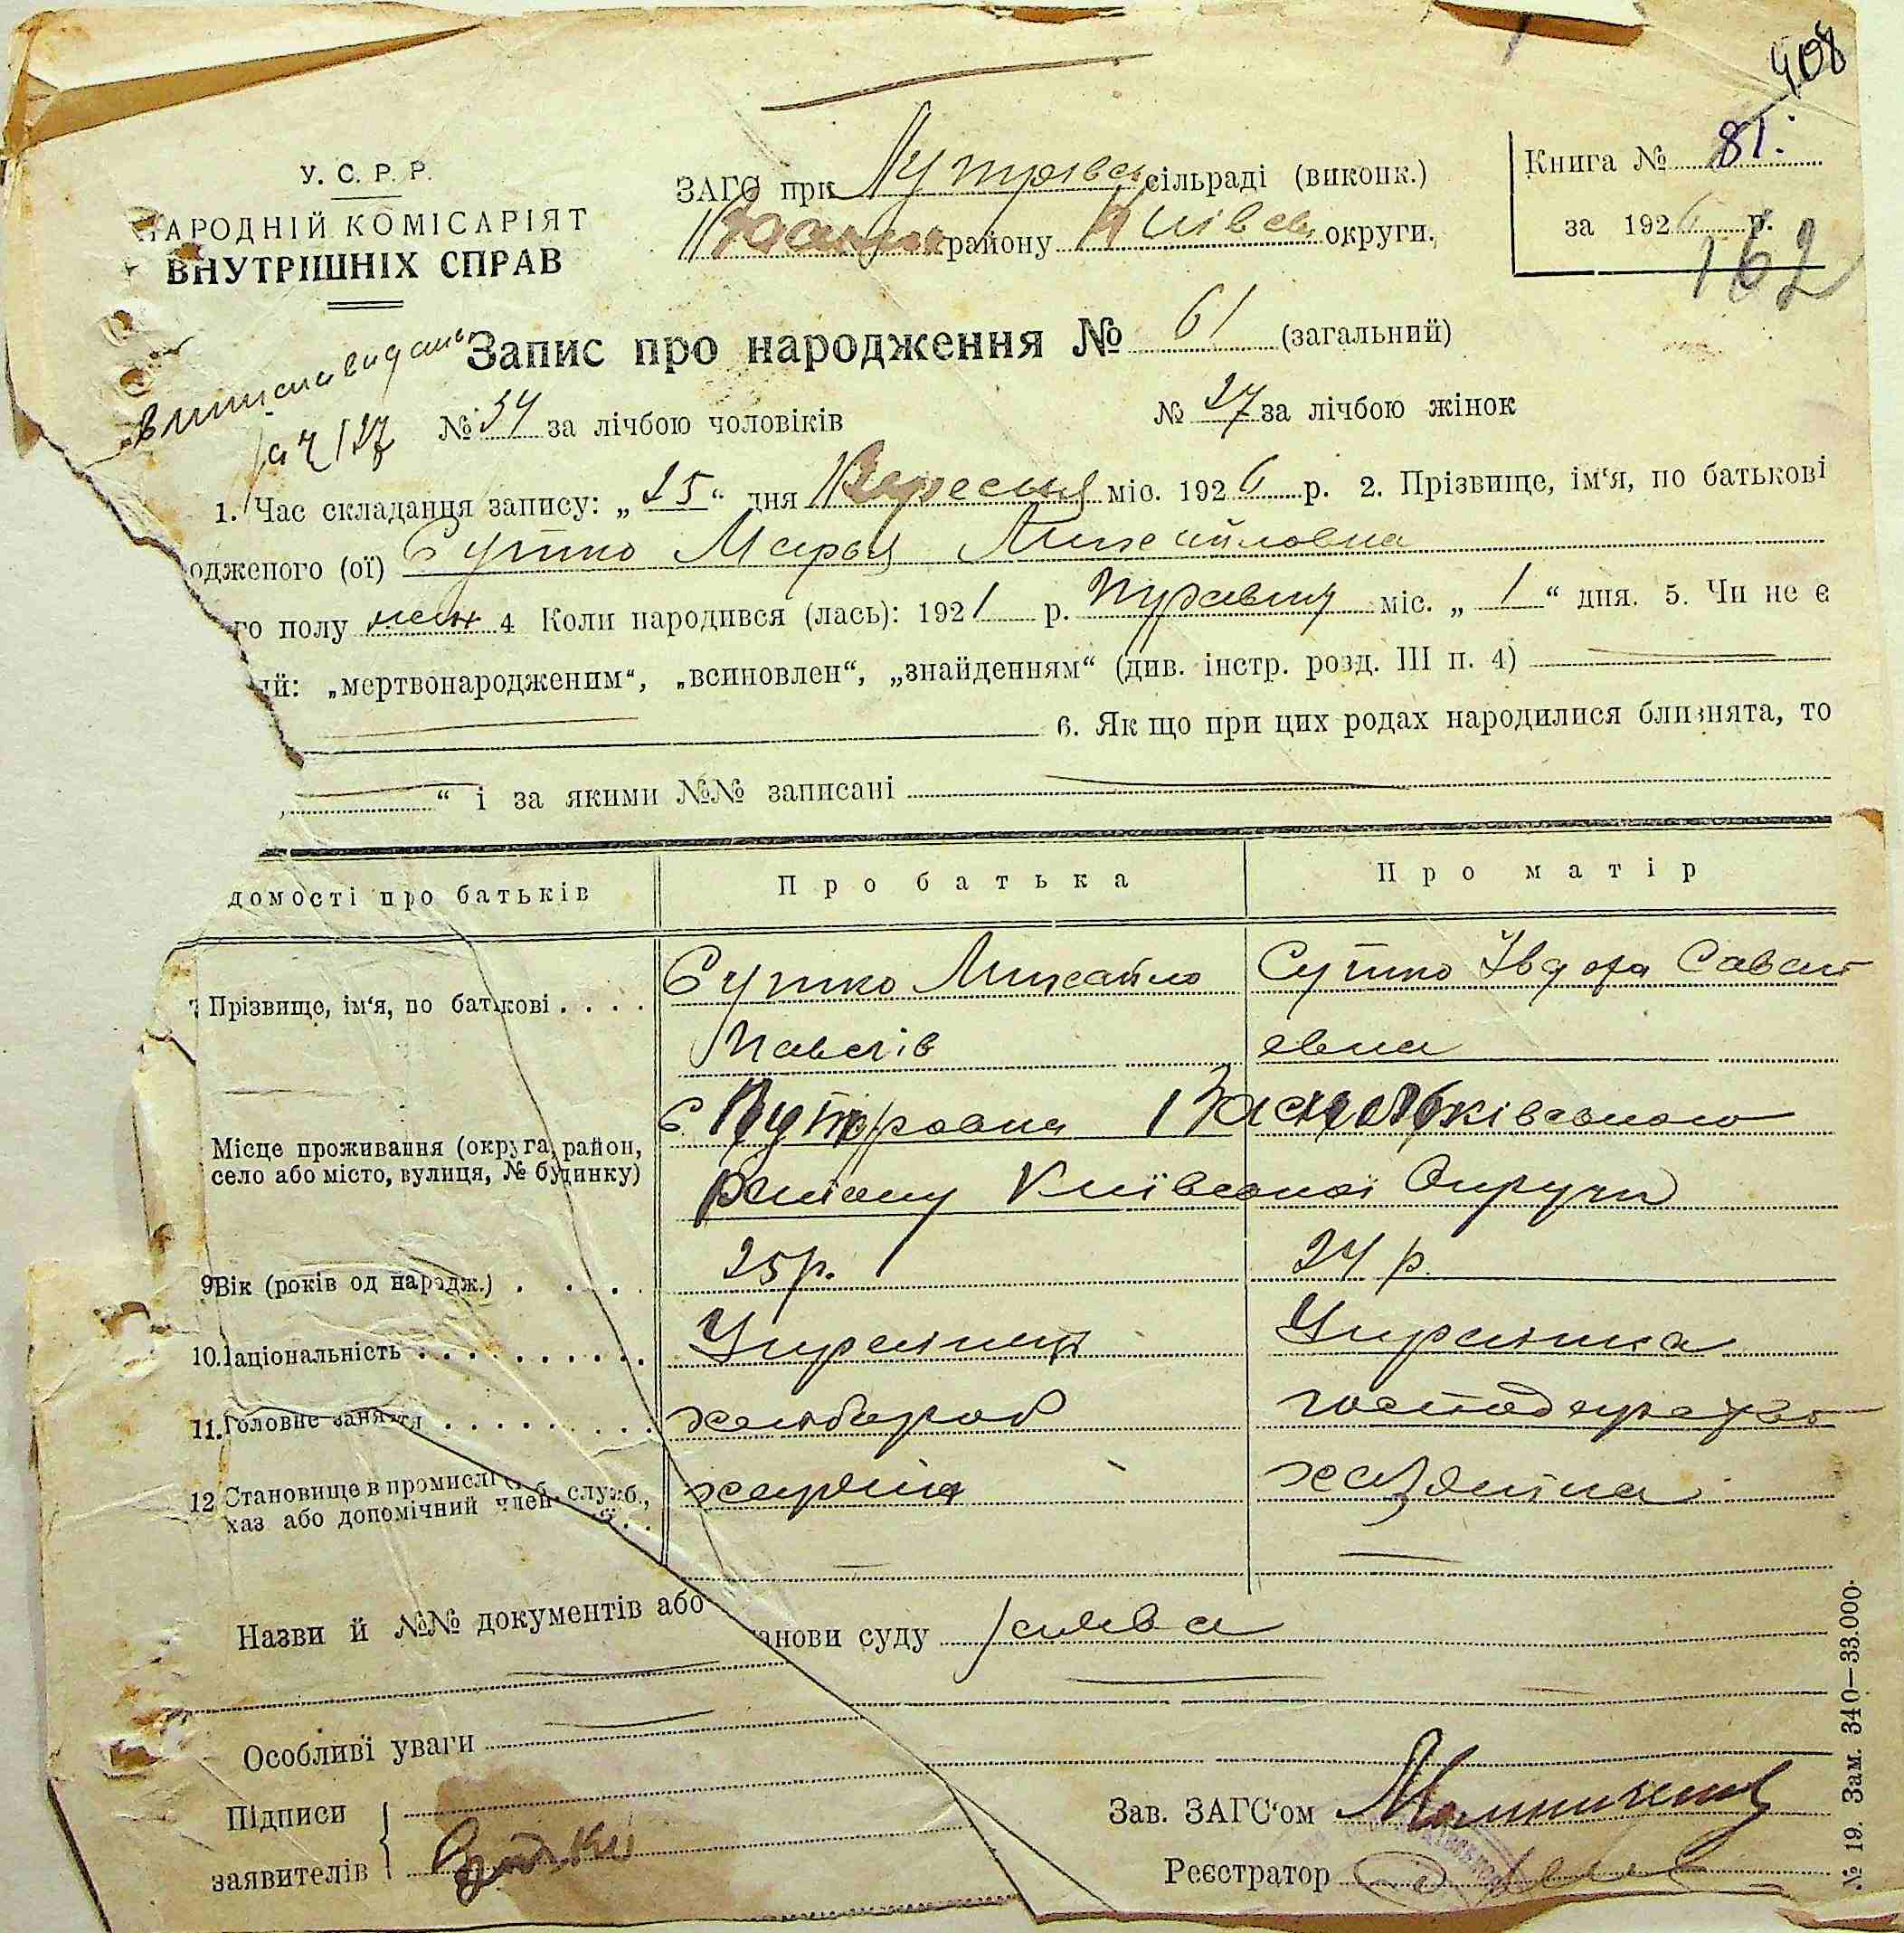 408
У. С. Р. Р.
НАРОДНІЙ КОМІСАРІЯТ
ВНУТРІШНІХ СПРАВ
ЗАГС при сільраді (виконк.)
району Київськ округи.
Книга № 81.
за 1926 р.
162
Запис про народження № 61 (загальний)
№ 34 за лічбою чоловіків № 27 за лічбою жінок
1. Час складання запису: „ 25 “ дня Вересня міс. 1926 р. 2. Прізвище, ім‘я, по батькові
одженого (ої) Сутко Марья Михайловна
го полу жен 4 Коли народився (лась): 1921 р. Травня міс. „ 1 “ дня. 5. Чи не є
ий: „мертвонародженим“, „всиновлен“, „знайденням“ (див. інстр. розд. III п. 4)
6. Як що при цих родах народилися близнята, то
“ і за якими №№ записані
домості про батьків Про батька Про матір
Прізвище, ім‘я, по батькові . . . . Сутко Михайло Сутко Ївдоха Савват
Павлів евна
Місце проживання (округа, район, с.
село або місто, вулиця, № будинку) Району Київської Округи
9 Вік (років од народж.) . . . . 25 р. 24 р.
10. Національність . . . . . . . . . . Українець Українка
11. Головне заняття . . . . . . . . . хлібороб господарство
12 Становище в промислі служб.,
хаз або допомічний член хазяїн хазяйка
Назви й №№ документів або
анови суду заява
Особливі уваги
Підписи
заявителів Сутко
Зав. ЗАГС‘ом
Реєстратор
№ 19. Зам. 340—33.000.